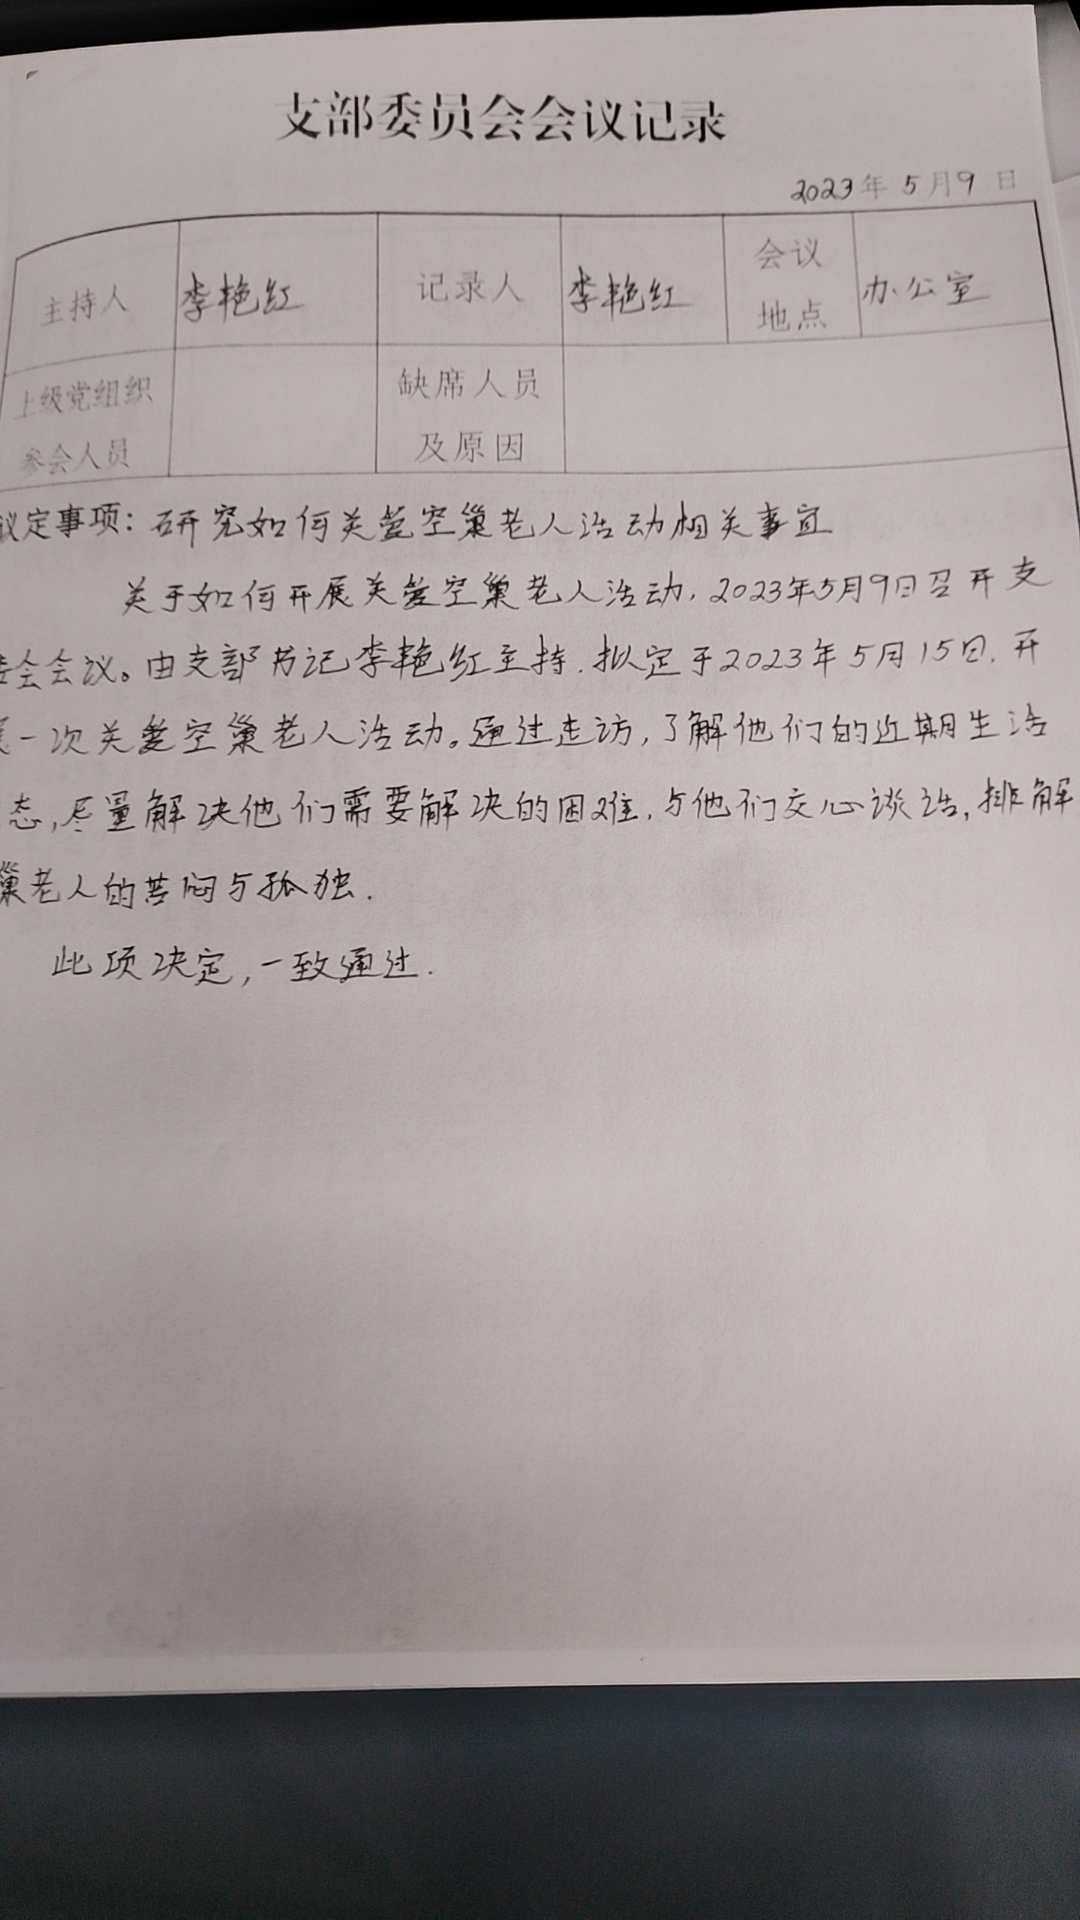 支部委员会会议记录
2023年5月9日
主持人 李艳红 记录人 李艳红 会议地点 办公室
上级党组织参会人员 缺席人员及原因
议定事项：研究如何关爱空巢老人活动相关事宜
关于如何开展关爱空巢老人活动，2023年5月9日召开支
委会会议。由支部书记李艳红主持．拟定于2023年5月15日．开
展一次关爱空巢老人活动。通过走访，了解他们的近期生活
态，尽量解决他们需要解决的困难．与他们交心谈话，排解
巢老人的苦闷与孤独．
此项决定，一致通过．